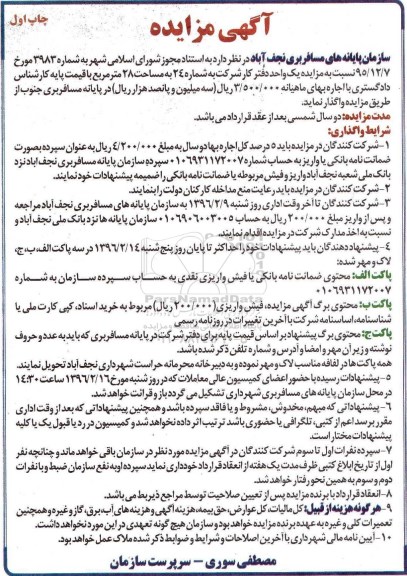 آگهی مزایده
چاپ اول
سازمان پایانه های مسافربری نجف آباد در نظر دارد به استناد مجوز شورای اسلامی شهر به شماره ۳۹۸۳ مورخ
۹۵/۱۲/۷ نسبت به مزایده یک واحد دفتر کار شرکت به شماره ۲۴ به مساحت ۲۸ مترمربع با قیمت پایه کارشناس
دادگستری با اجاره بهای ماهیانه ۳/۵۰۰/۰۰۰ ریال (سه میلیون و پانصد هزار ریال) در پایانه مسافربری جنوب از
طریق مزایده واگذار نماید.
مدت مزایده: دو سال شمسی بعد از عقد قرارداد می باشد.
شرایط واگذاری:
۱- شرکت کنندگان در مزایده باید ۵ درصد کل اجاره بها دو سال به مبلغ ۴/۲۰۰/۰۰۰ ریال به عنوان سپرده بصورت
ضمانت نامه بانکی یا واریز به حساب شماره ۰۱۰۶۹۳۱۱۷۲۰۰۷ سپرده سازمان پایانه مسافربری نجف آباد نزد
بانک ملی شعبه نجف آباد واریز و فیش مربوطه یا ضمانت نامه بانکی را ضمیمه پیشنهادات خود نمایند.
۲- شرکت کنندگان در مزایده باید رعایت منع مداخله کارکنان دولت را بنمایند.
۳- شرکت کنندگان تا آخر وقت اداری روز شنبه ۱۳۹۶/۲/۹ به سازمان پایانه های مسافربری نجف آباد مراجعه
و پس از واریز مبلغ ۲۰۰/۰۰۰ ریال به حساب ۰۱۰۶۹۰۶۰۰۳۰۰۵ سازمان پایانه ها نزد بانک ملی نجف آباد و
نسبت به اخذ مدارک شرکت در مزایده اقدام نمایند.
۴- پیشنهاد دهندگان باید پیشنهادات خود را حداکثر تا پایان روز پنج شنبه ۱۳۹۶/۲/۱۴ در سه پاکت الف، ب، ج،
لاک و مهر شده:
پاکت الف: محتوی ضمانت نامه بانکی یا فیش واریزی نقدی به حساب سپرده سازمان به شماره
۰۱۰۶۹۳۱۱۷۲۰۰۷
پاکت ب: محتوی برگ آگهی مزایده، فیش واریزی (۲۰۰/۰۰۰ ریال) مربوط به خرید اسناد، کپی کارت ملی یا
شناسنامه، اساسنامه شرکت با آخرین تغییرات در روزنامه رسمی
پاکت ج: محتوی برگ پیشنهاد بر اساس قیمت پایه برای دفتر شرکت در پایانه مسافربری که باید به عدد و حروف
نوشته و زیر آن مهر و امضا و آدرس و شماره تلفن ذکر شده باشد.
همه پاکت ها در لفافه مناسب لاک و مهر نموده و به دبیرخانه محرمانه حراست شهرداری نجف آباد تحویل نمایند.
۵- پیشنهادات رسیده با حضور اعضای کمیسیون عالی معاملات که در روز شنبه مورخ ۱۳۹۶/۲/۱۶ ساعت ۱۴:۳۰
در محل سازمان پایانه های مسافربری شهرداری تشکیل می گردد باز و قرائت خواهد شد.
۶- پیشنهاداتی که مبهم، مخدوش، مشروط و یا فاقد سپرده باشد و همچنین پیشنهاداتی که بعد از وقت اداری
مقرر برسد اعم از کتبی، تلگرافی یا حضوری باشد ترتیب اثر داده نخواهد شد و کمیسیون در رد یا قبول یک یا کلیه
پیشنهادات مختار است.
۷- سپرده نفرات اول تا سوم شرکت کنندگان در آگهی مزایده مورد نظر در سازمان باقی خواهد ماند و چنانچه نفر
اول از تاریخ ابلاغ کتبی ظرف مدت یک هفته از انعقاد قرارداد خودداری نماید سپرده او به نفع سازمان ضبط و با نفرات
دوم و سوم به همین نحو رفتار خواهد شد.
۸- انعقاد قرارداد با برنده مزایده پس از تعیین صلاحیت توسط مراجع ذیربط می باشد.
۹- هر گونه هزینه از قبیل: کل مالیات، کل عوارض، حق بیمه، هزینه آگهی و هزینه های آب، برق، گاز و غیره و همچنین
تعمیرات کلی و غیره به عهده برنده مزایده خواهد بود و سازمان هیچ گونه تعهدی در این مورد نخواهد داشت.
۱۰- آیین نامه مالی شهرداری با آخرین اصلاحات و شرایط و ضوابط ذکر شده ملاک عمل خواهد بود.
مصطفی سوری – سرپرست سازمان